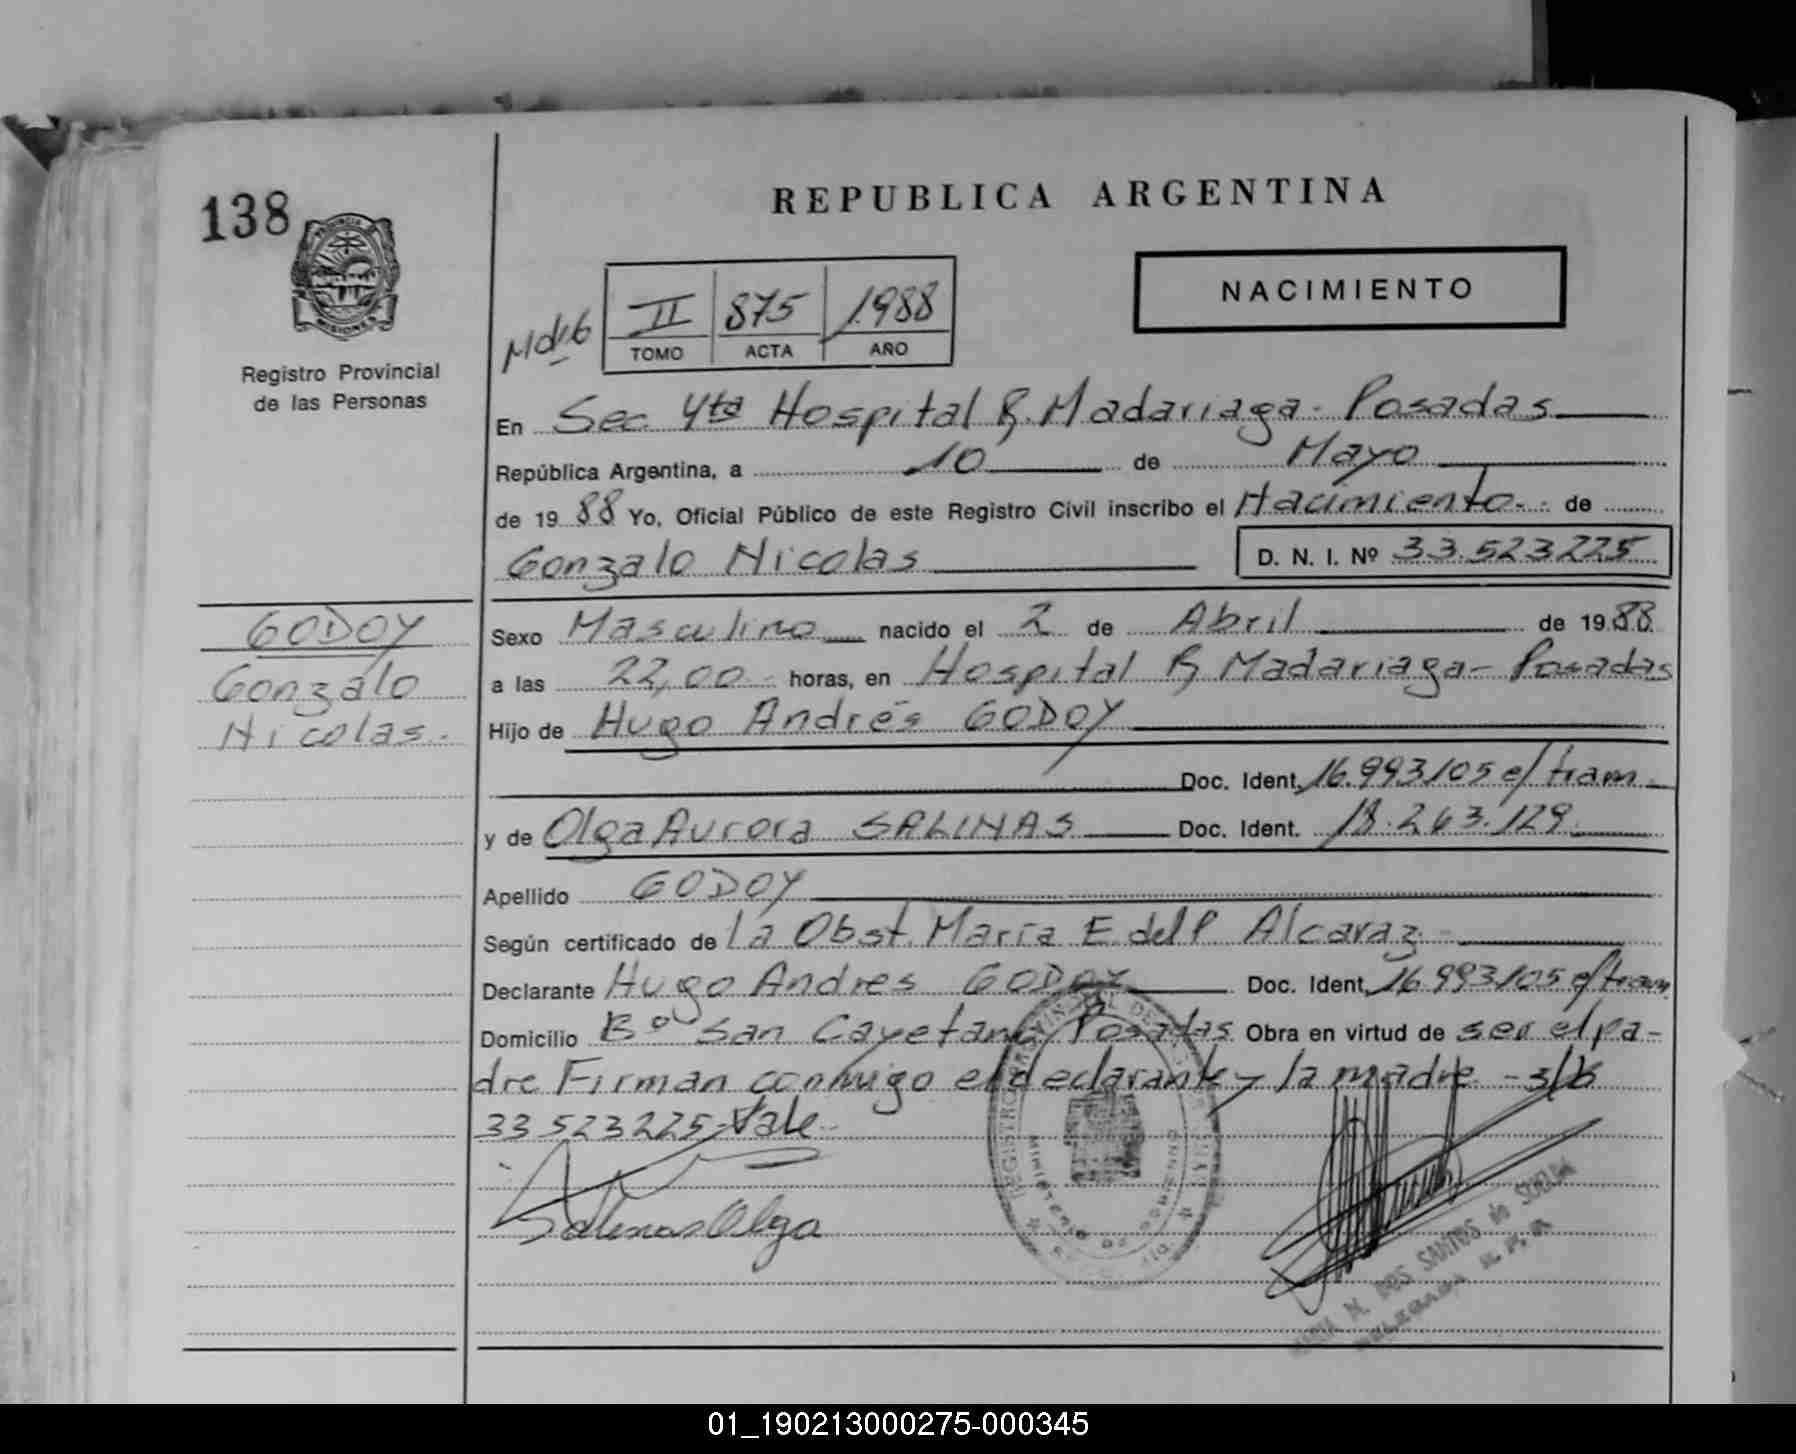 138
REPUBLICA ARGENTINA
NACIMIENTO
II 875 1988
TOMO ACTA AÑO
PROVINCIA DE
MISIONES
Registro Provincial
de las Personas
En Sec. 4ta Hospital R. Madariaga - Posadas
República Argentina, a 10 de Mayo
de 1988 Yo, Oficial Público de este Registro Civil inscribo el Nacimiento de
Gonzalo Nicolas D. N. I. Nº 33.523.225
GODOY
Gonzalo
Nicolas.
Sexo Masculino nacido el 2 de Abril de 1988
a las 22,00 horas, en Hospital R. Madariaga - Posadas
Hijo de Hugo Andrés GODOY
Doc. Ident. 16.993.105 e/ tram.
y de Olga Aurora SALINAS Doc. Ident. 18.263.129
Apellido GODOY
Según certificado de la Obst. María E. del P. Alcaraz
Declarante Hugo Andres GODOY Doc. Ident. 16.993.105 e/ tram
Domicilio Bº San Cayetano Posadas Obra en virtud de ser el pa-
dre Firman conmigo el declarante y la madre - s/b
33 523 225 - Vale
Salinas Olga
DOS SANTOS de
01_190213000275-000345